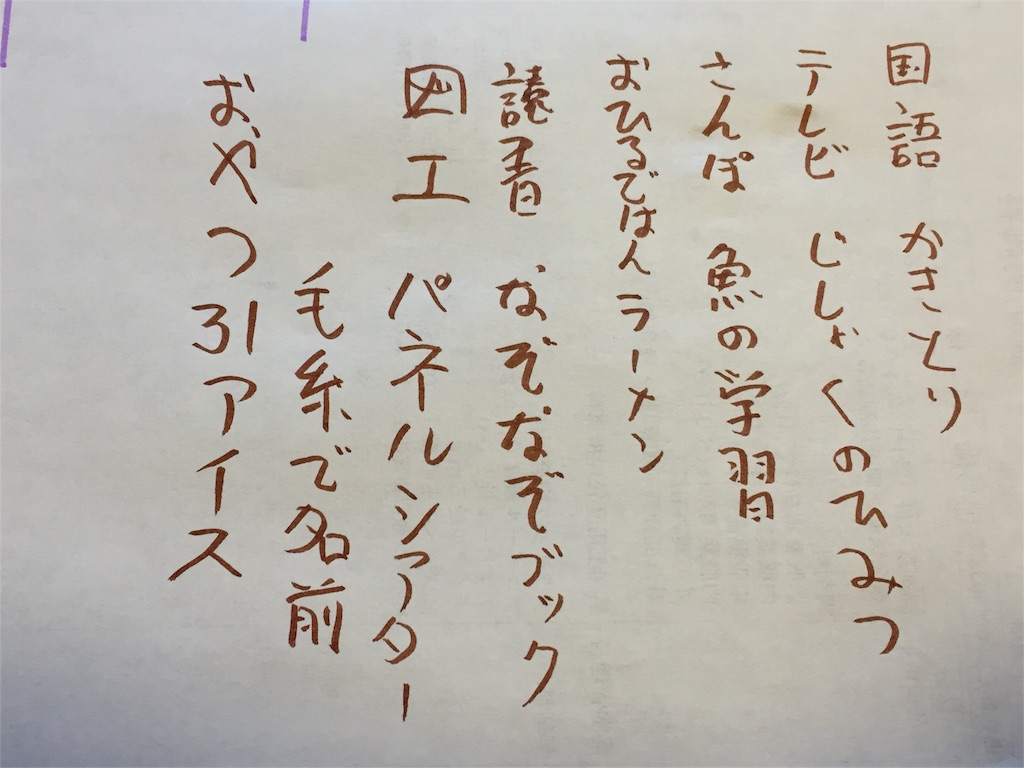 国語 かさとり
テレビ じしゃくのひみつ
さんぽ 魚の学習
おひるごはん ラーメン
読書 なぞなぞブック
図工 パネルシアター
毛糸で名前
おやつ 31アイス